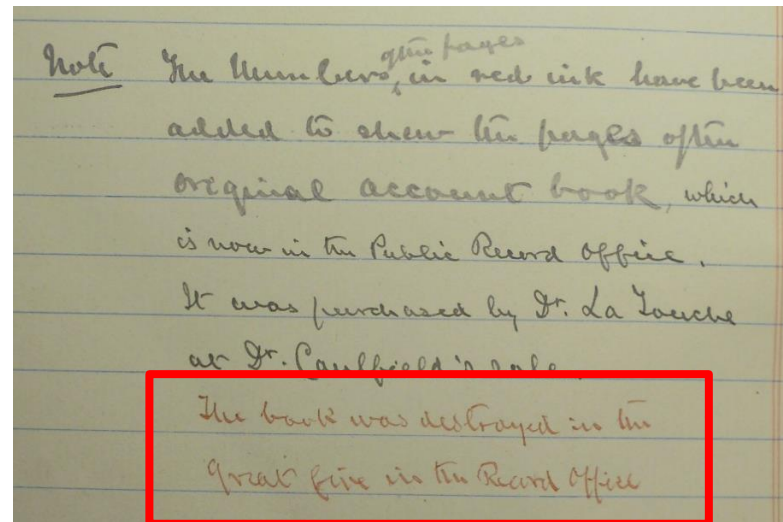 of the pages
Note The Numbers, in red ink have been
added to shew the pages of the
original account book, which
is now in the Public Record Office.
It was purchased by Dr. La Touche
at Dr. Caulfield's sale.
The book was destroyed in the
great fire in the Record Office